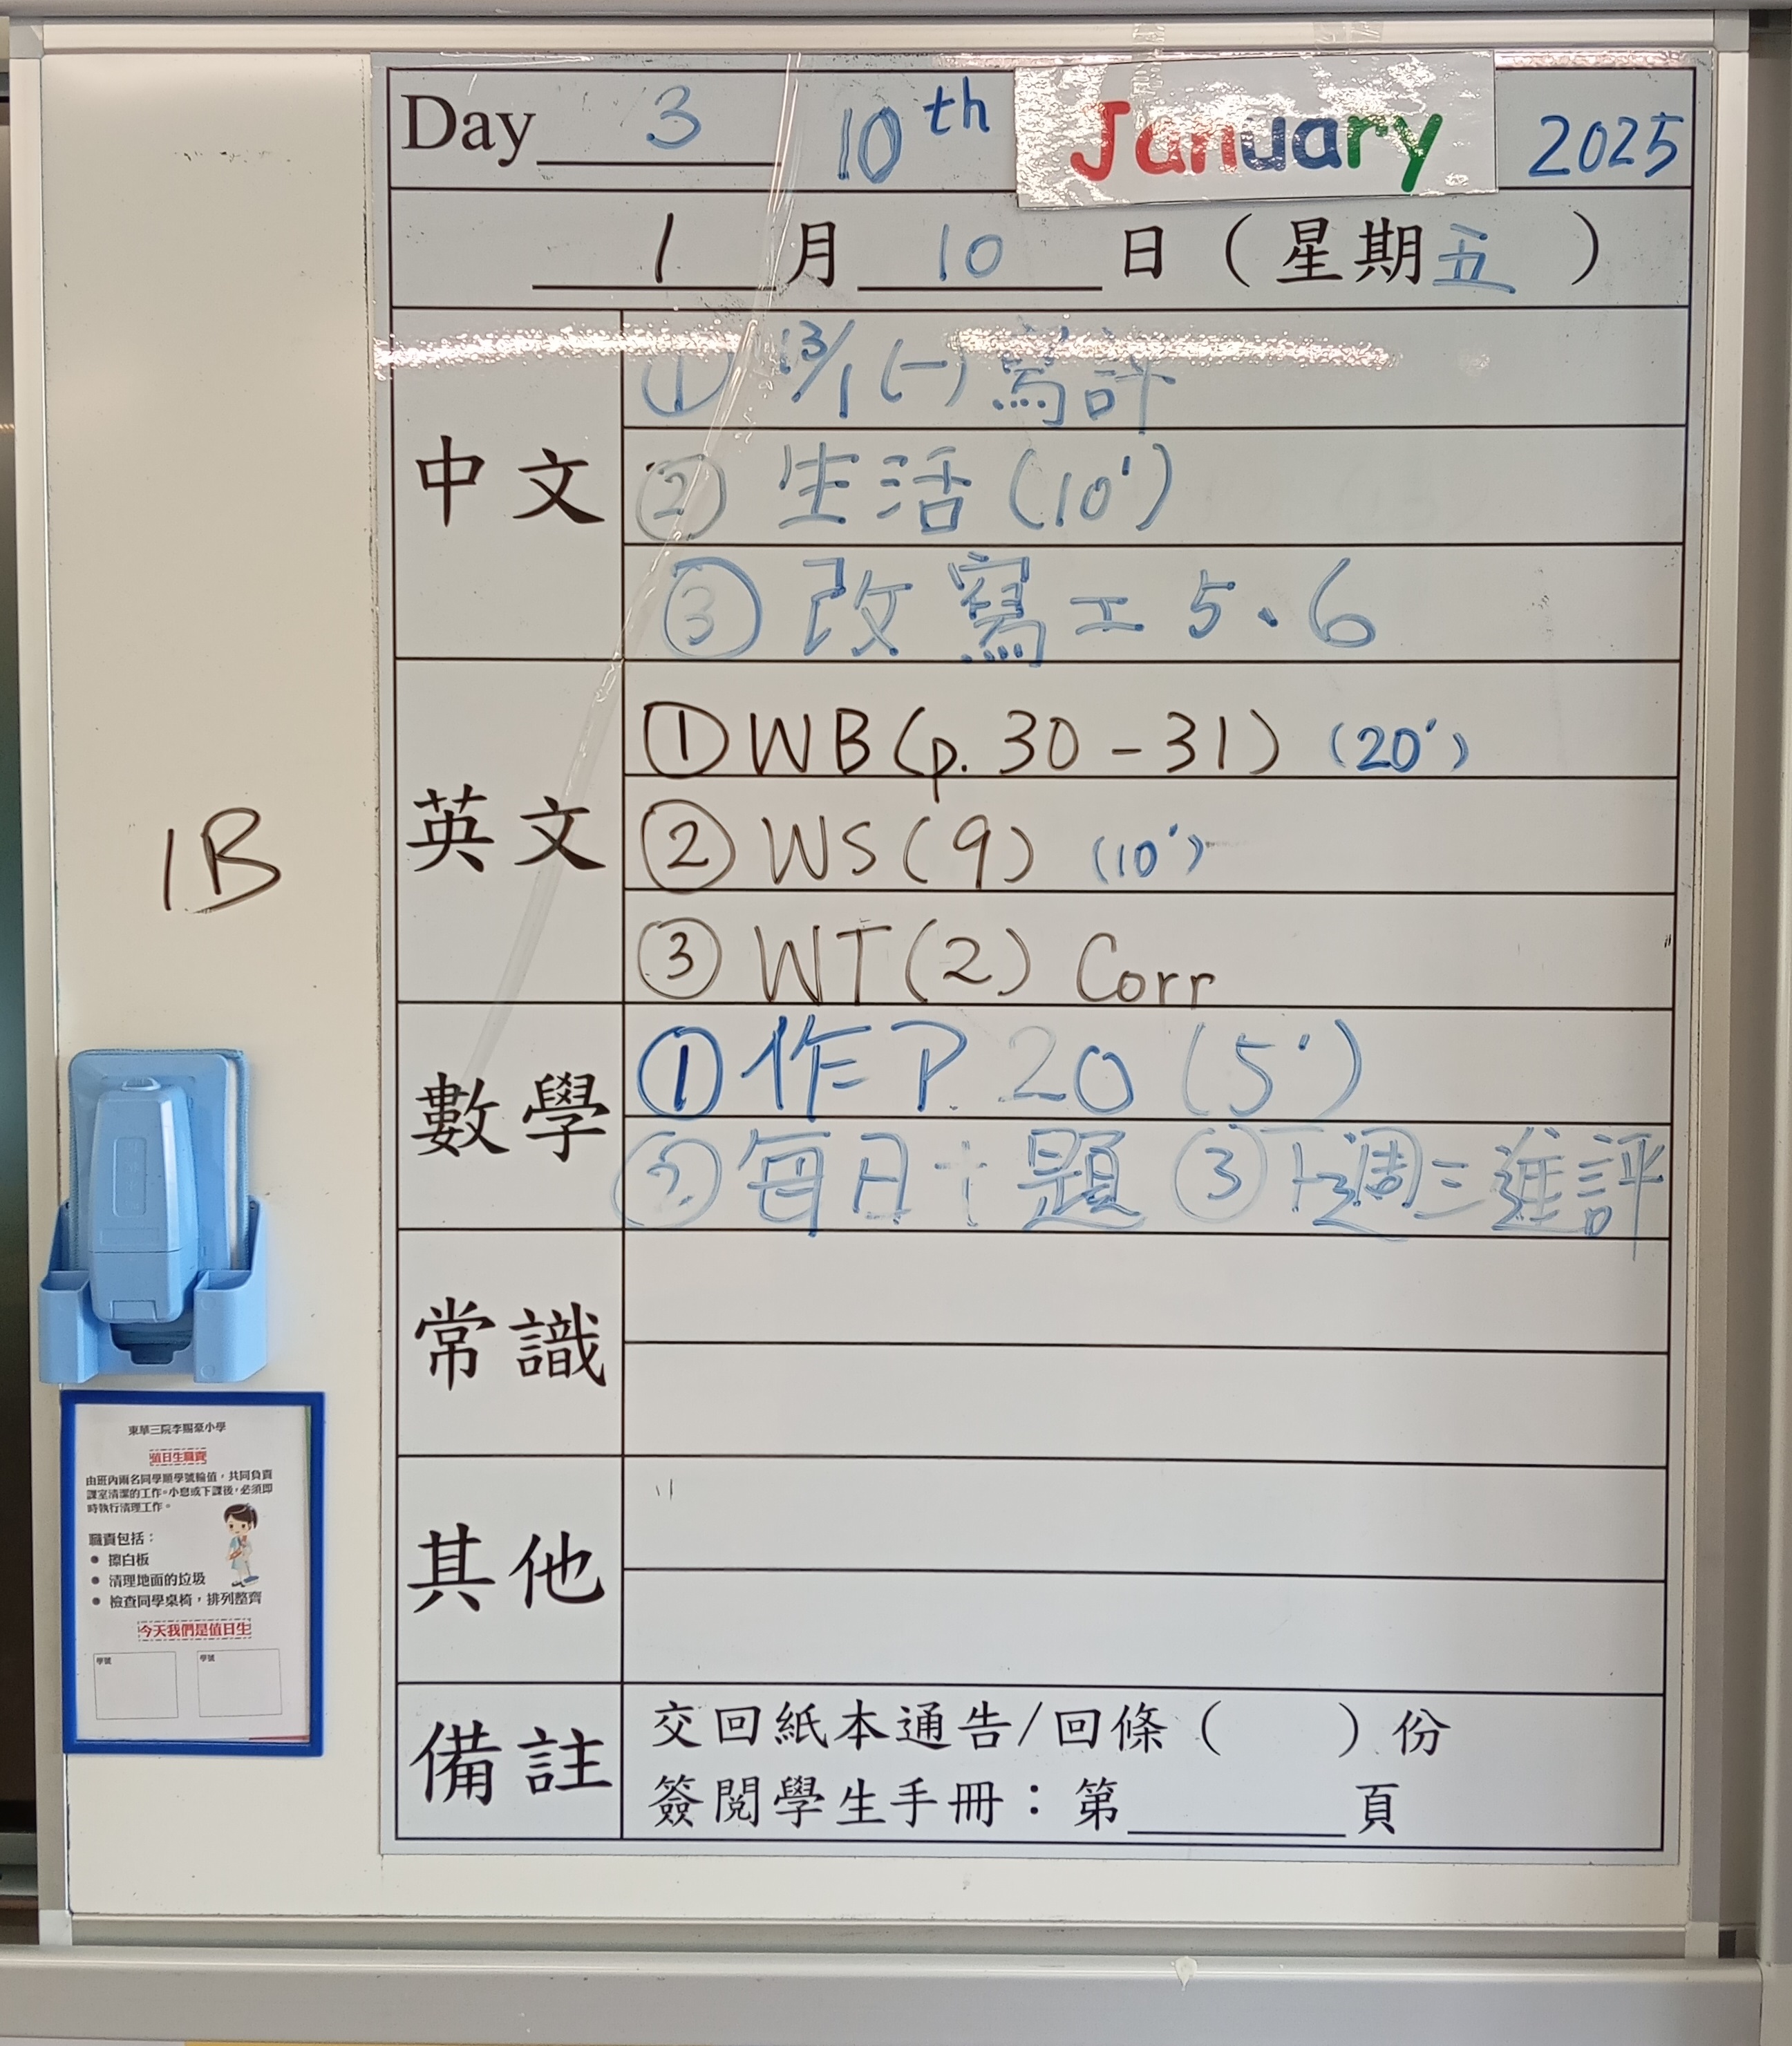 Day 3 10th January 2025
1 月 10 日 ( 星期五 )
中文
① 13/1 (一) 寫評
② 生活 (10')
③ 改寫工 5、6
英文
① WB (p. 30 - 31) (20')
② WS (9) (10')
③ WT (2) Corr
數學
① 作 P. 20 (5')
② 每日十題 ③ 下週三進評
常識
其他
備註
交回紙本通告/回條 ( ) 份
簽閱學生手冊：第______頁
1B
東華三院李賜豪小學
值日生職責
由班內兩名同學順學號輪值，共同負責
課室清潔的工作。小息或下課後，必須即
時執行清理工作。
職責包括：
● 擦白板
● 清理地面的垃圾
● 檢查同學桌椅，排列整齊
今天我們是值日生
學號 學號